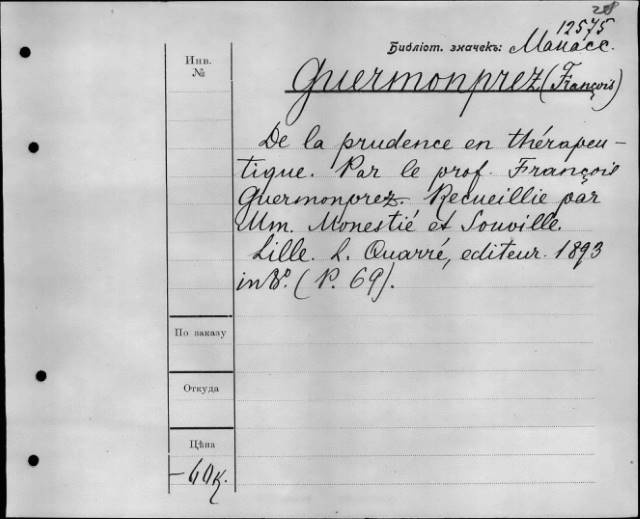 28
12575
Библіот. значекъ: Манасс.
Инв.
№
Guermonprez (François)
De la prudence en thérapeu-
tique. Par le prof. François
Guermonprez. Recueillie par
Mm. Monestié et Souville.
Lille. L. Quarré, editeur. 1893
in 8°. (P. 69).
По заказу
Откуда
Цѣна
- 60 к.